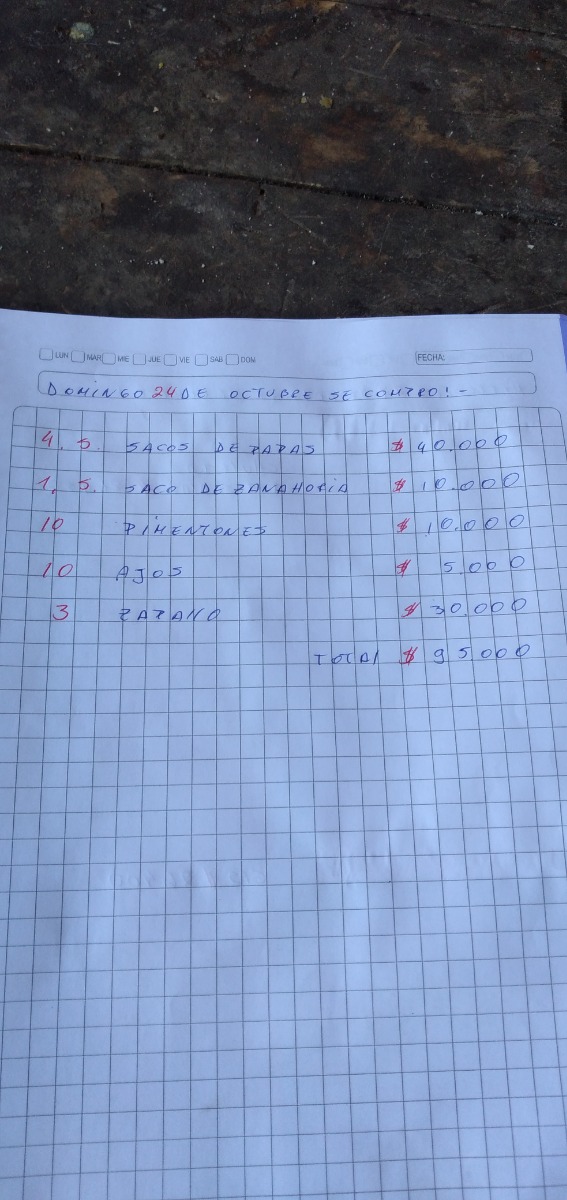 LUN MAR MIE JUE VIE SAB DOM FECHA:
DOMINGO 24 DE OCTUBRE SE COMPRO! -
4. 5. SACOS DE PAPAS $ 40.000
1, 5. SACO DE ZANAHORIA $ 10.000
10 PIMENTONES $ 10.000
10 AJOS $ 5.000
3 ZAPALLO $ 30.000
TOTAL $ 95000